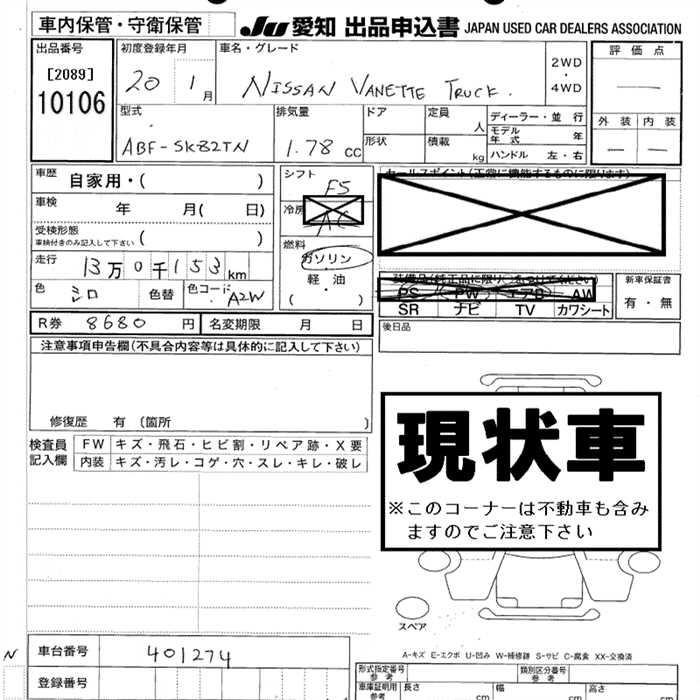 車内保管・守衛保管
JU 愛知 出品申込書 JAPAN USED CAR DEALERS ASSOCIATION
出品番号
[2089]
10106
初度登録年月
20 1月
車名・グレード
NISSAN VANETTE TRUCK.
2WD
・
4WD
評価点
—
外装 内装
— —
型式
ABF-SK82TN
排気量
1.78 CC
ドア
形状
定員 人
積載 kg
ディーラー・並行
モデル年式 年
ハンドル 左・右
車歴 自家用・( )
車検 年 月( 日)
受検形態
車検付きのみ記入して下さい ( )
走行 13万0千153km
色 シロ 色替 色コード A2W
シフト F5
冷房 AC
燃料
ガソリン
・
軽油
( )
セールスポイント(正常に機能するものに限ります)
PS PW エアB AW
SR ナビ TV カワシート
新車保証書
有・無
後日品
R券 8680 円 名変期限 月 日
注意事項申告欄(不具合内容等は具体的に記入して下さい)
修復歴 有 (箇所 )
検査員記入欄
FW キズ・飛石・ヒビ割・リペア跡・X要
内装 キズ・汚レ・コゲ・穴・スレ・キレ・破レ
現状車
※このコーナーは不動車も含み
ますのでご注意下さい
スペア
A-キズ E-エクボ U-凹み W-補修跡 S-サビ C-腐食 XX-交換済
N
車台番号 401274
登録番号
形式指定番号
参考
類別区分番号
参考
車庫証明用
参考
長さ cm 幅 cm 高さ cm